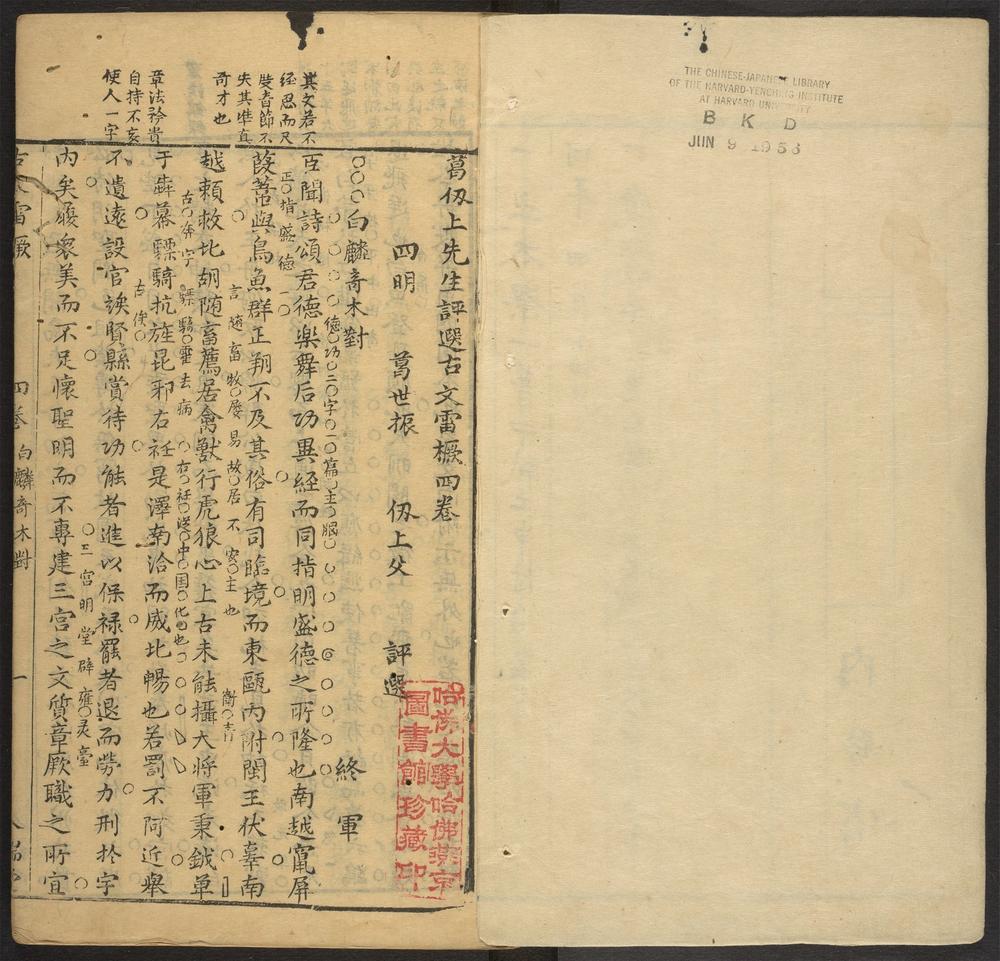 THE CHINESE-JAPANESE LIBRARY
OF THE HARVARD-YENCHING INSTITUTE
AT HARVARD UNIVERSITY
B K D
JUN 9 1953
葛仭上先生評選古文雷橛四卷
四明 葛世振 仭上父 評選
哈佛大學哈佛燕京
圖書館珍藏印
白麟奇木對 終軍
德功二字一篇主腦
其文若不
经思而尺
度音節不
失其準真
奇才也
臣聞詩頌君德樂舞后功異経而同指明盛德之所隆也南越竄屏
正指盛德
葭葦與鳥魚群正朔不及其俗有司臨境而東甌內附閩王伏辜南
言随畜牧屢易故居不安主也
衛青
越頼救北胡随畜薦居禽獸行虎狼心上古未能攝大将軍秉鉞單
古奔字
驃騎霍去病
右衽從中国化也
章法矜貴
自持不妄
使人一字
于犇幕驃騎抗旌昆邪右衽是澤南洽而威北暢也若罰不阿近舉
古俟
不遺遠設官竢賢縣賞待功能者進以保禄罷者退而勞力刑於宇
三宮明堂辟雍灵臺
內矣履衆美而不足懷聖明而不專建三宮之文質章厥職之所宜
古文雷橛 四卷 白麟奇木對 一